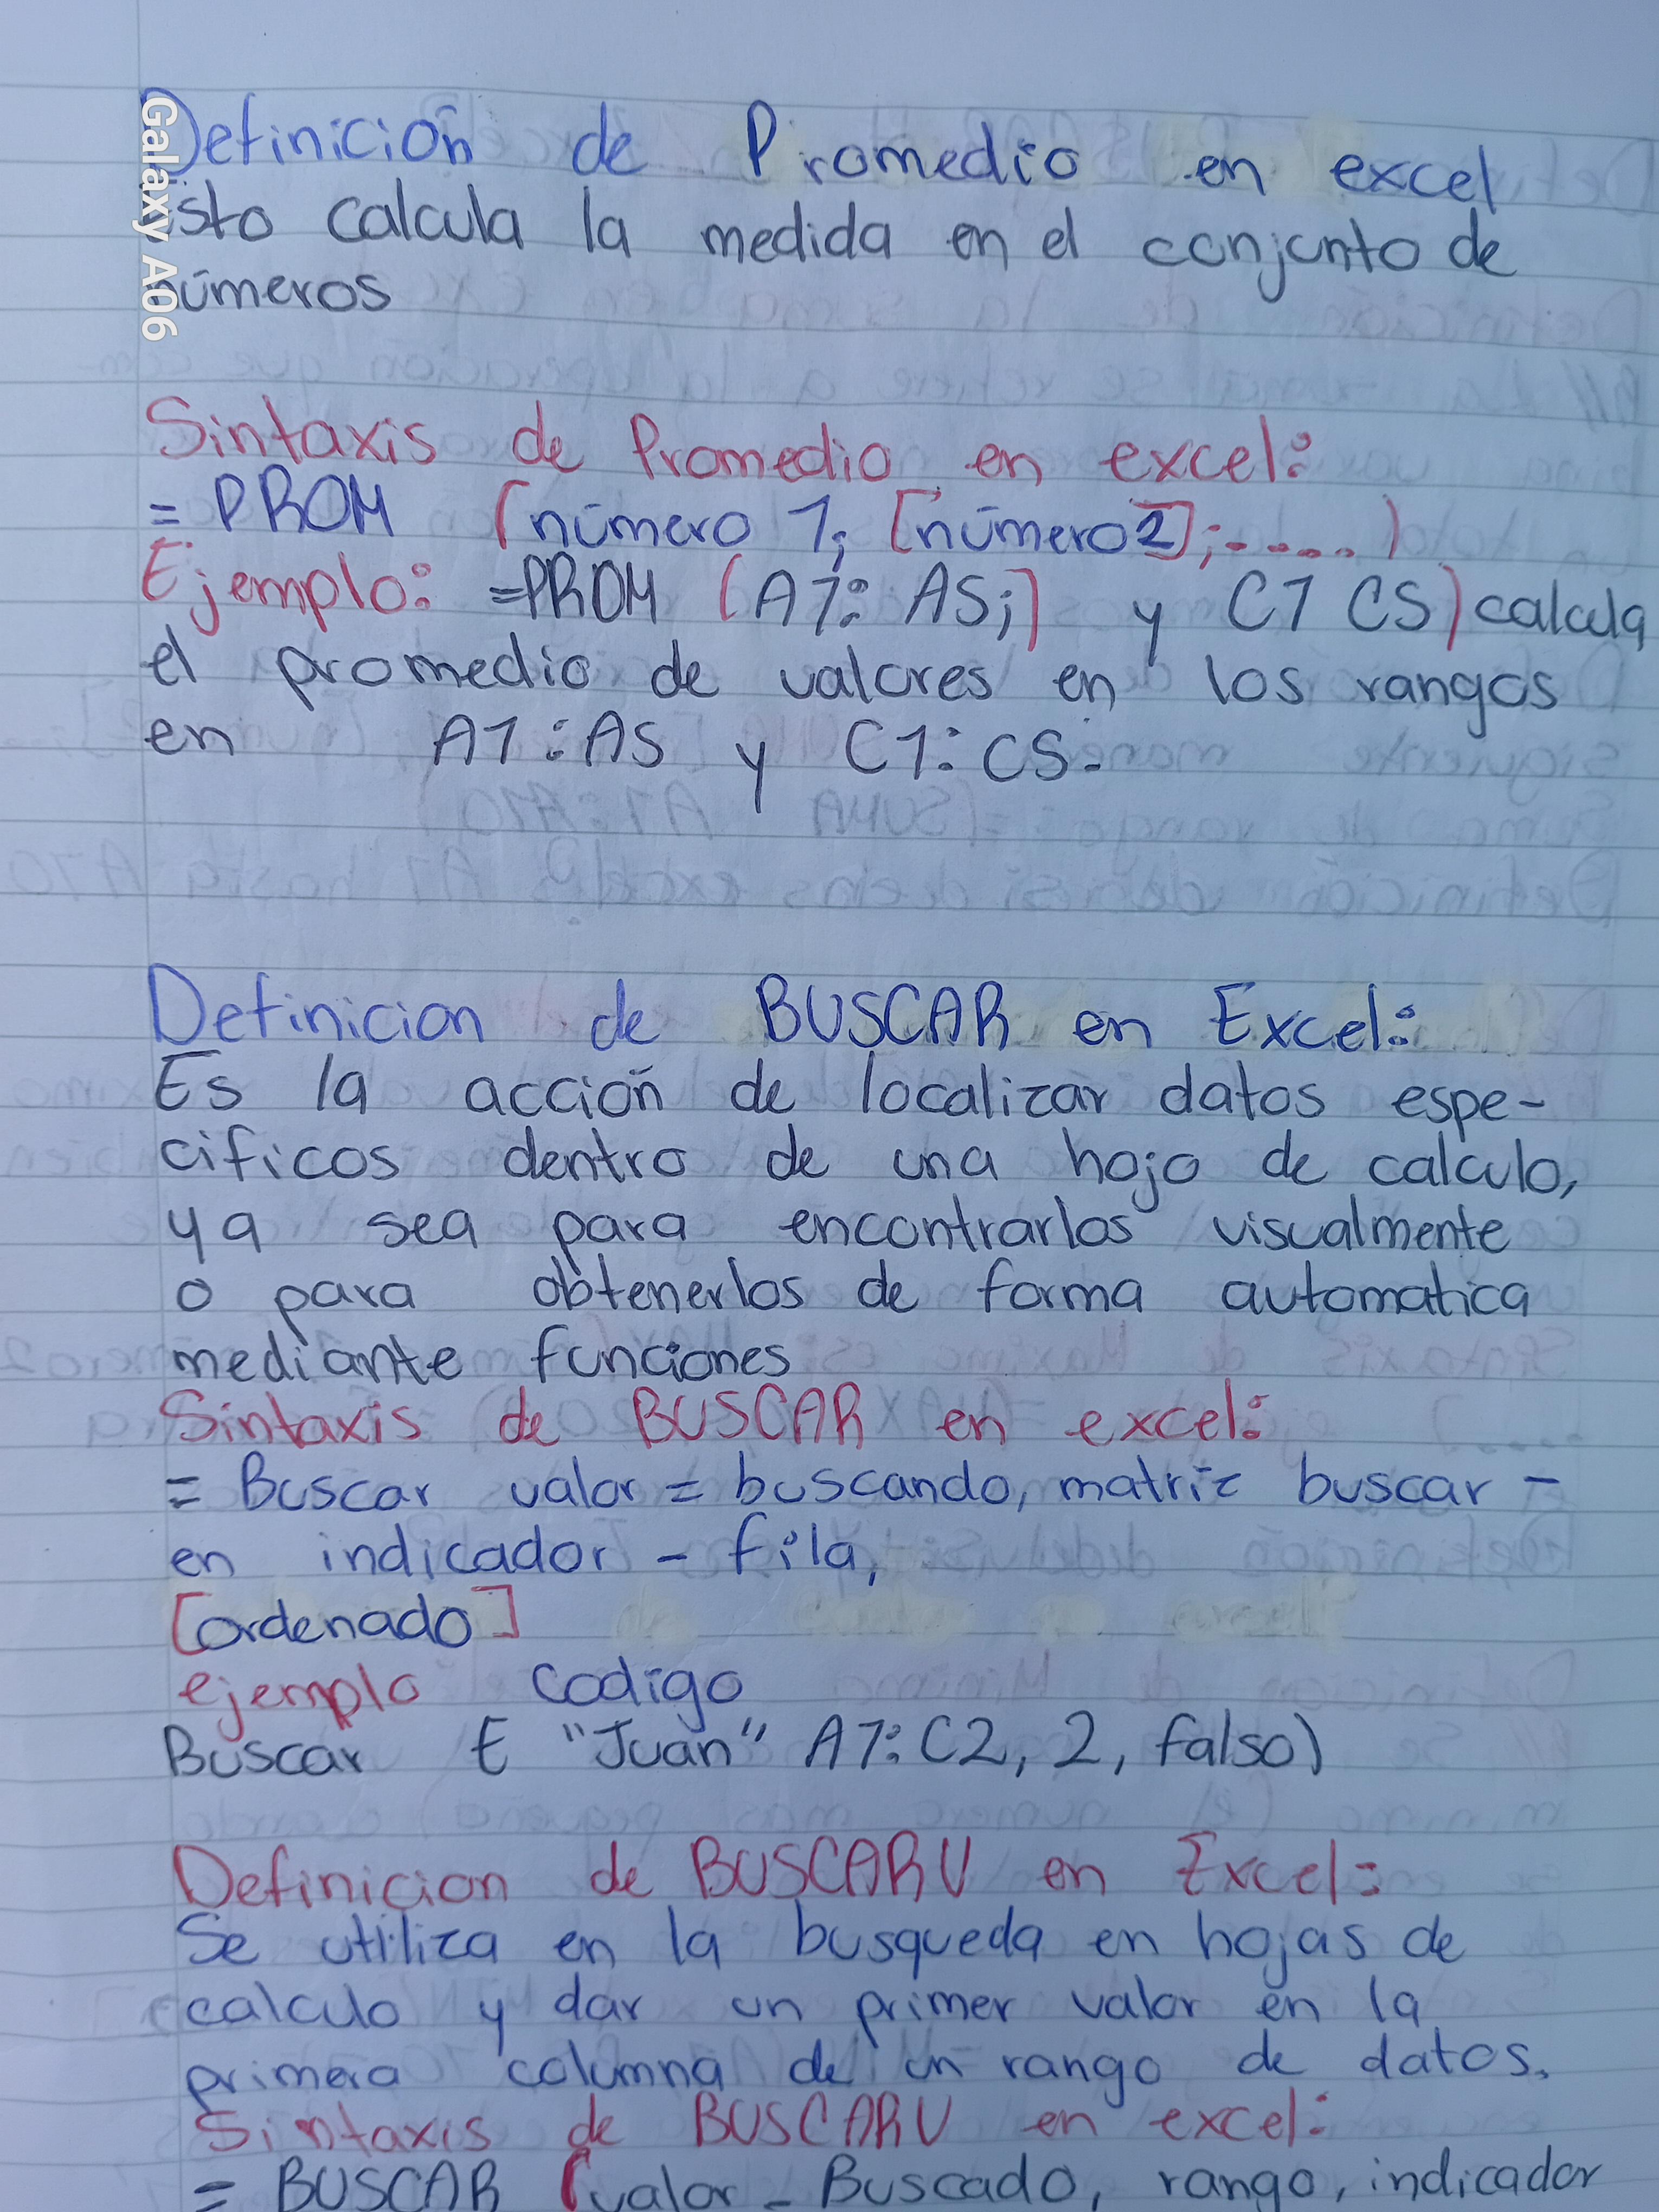 Definición de Promedio en excel
isto calcula la medida en el conjunto de
números
Sintaxis de Promedio en excel:
= PROM (número 1; [número2];.....)
Ejemplo: =PROM (A1: AS;) y C1 CS) calcula
el promedio de valores en los rangos
en A1:AS y C1:CS.
Definicion de BUSCAR en Excel:
Es la acción de localizar datos espe-
cificos dentro de una hojo de calculo,
ya sea para encontrarlos visualmente
o para obtenerlos de forma automatica
mediante funciones
Sintaxis de BUSCAR en excel:
= Buscar valor = buscando, matriz buscar -
en indicador - fila,
[ordenado]
ejemplo codigo
Buscar ( "Juan" A1:C2, 2, falso)
Definicion de BUSCARV en Excel:
Se utiliza en la busqueda en hojas de
calculo y dar un primer valor en la
primera columna de un rango de datos.
Sintaxis de BUSCARV en excel:
= BUSCAR (valor - Buscado, rango, indicador
Galaxy A06